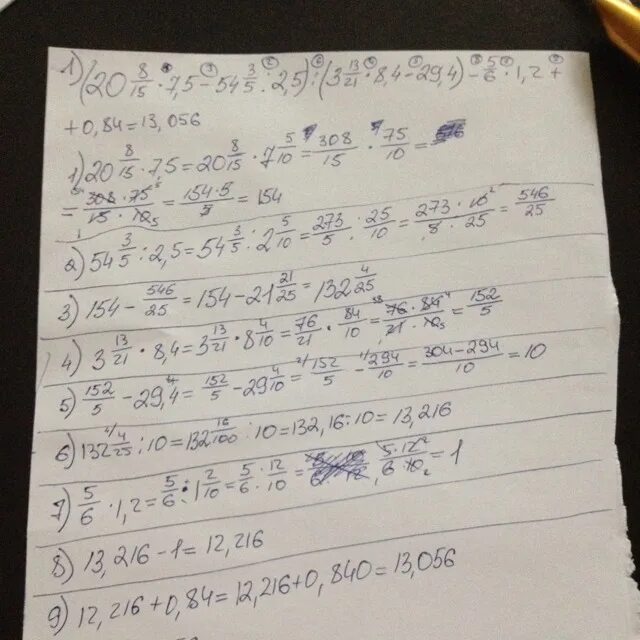 1) (20 8/15 · 7,5 - 54 3/5 : 2,5) : (3 13/21 · 8,4 - 29,4) - 5/6 · 1,2 +
+ 0,84 = 13,056
1) 20 8/15 · 7,5 = 20 8/15 · 7 5/10 = 308/15 · 75/10 =
= 308 · 75/15 · 10 = 154 · 5/5 = 154
2) 54 3/5 : 2,5 = 54 3/5 : 2 5/10 = 273/5 : 25/10 = 273 · 10/5 · 25 = 546/25
3) 154 - 546/25 = 154 - 21 21/25 = 132 4/25
4) 3 13/21 · 8,4 = 3 13/21 · 8 4/10 = 76/21 · 84/10 = 76 · 84/21 · 10 = 152/5
5) 152/5 - 29,4 = 152/5 - 29 4/10 = 152/5 - 294/10 = 304-294/10 = 10
6) 132 4/25 : 10 = 132 16/100 : 10 = 132,16 : 10 = 13,216
7) 5/6 · 1,2 = 5/6 : 1 2/10 = 5/6 · 12/10 = 5 · 12/6 · 10 = 1
8) 13,216 - 1 = 12,216
9) 12,216 + 0,84 = 12,216 + 0,840 = 13,056